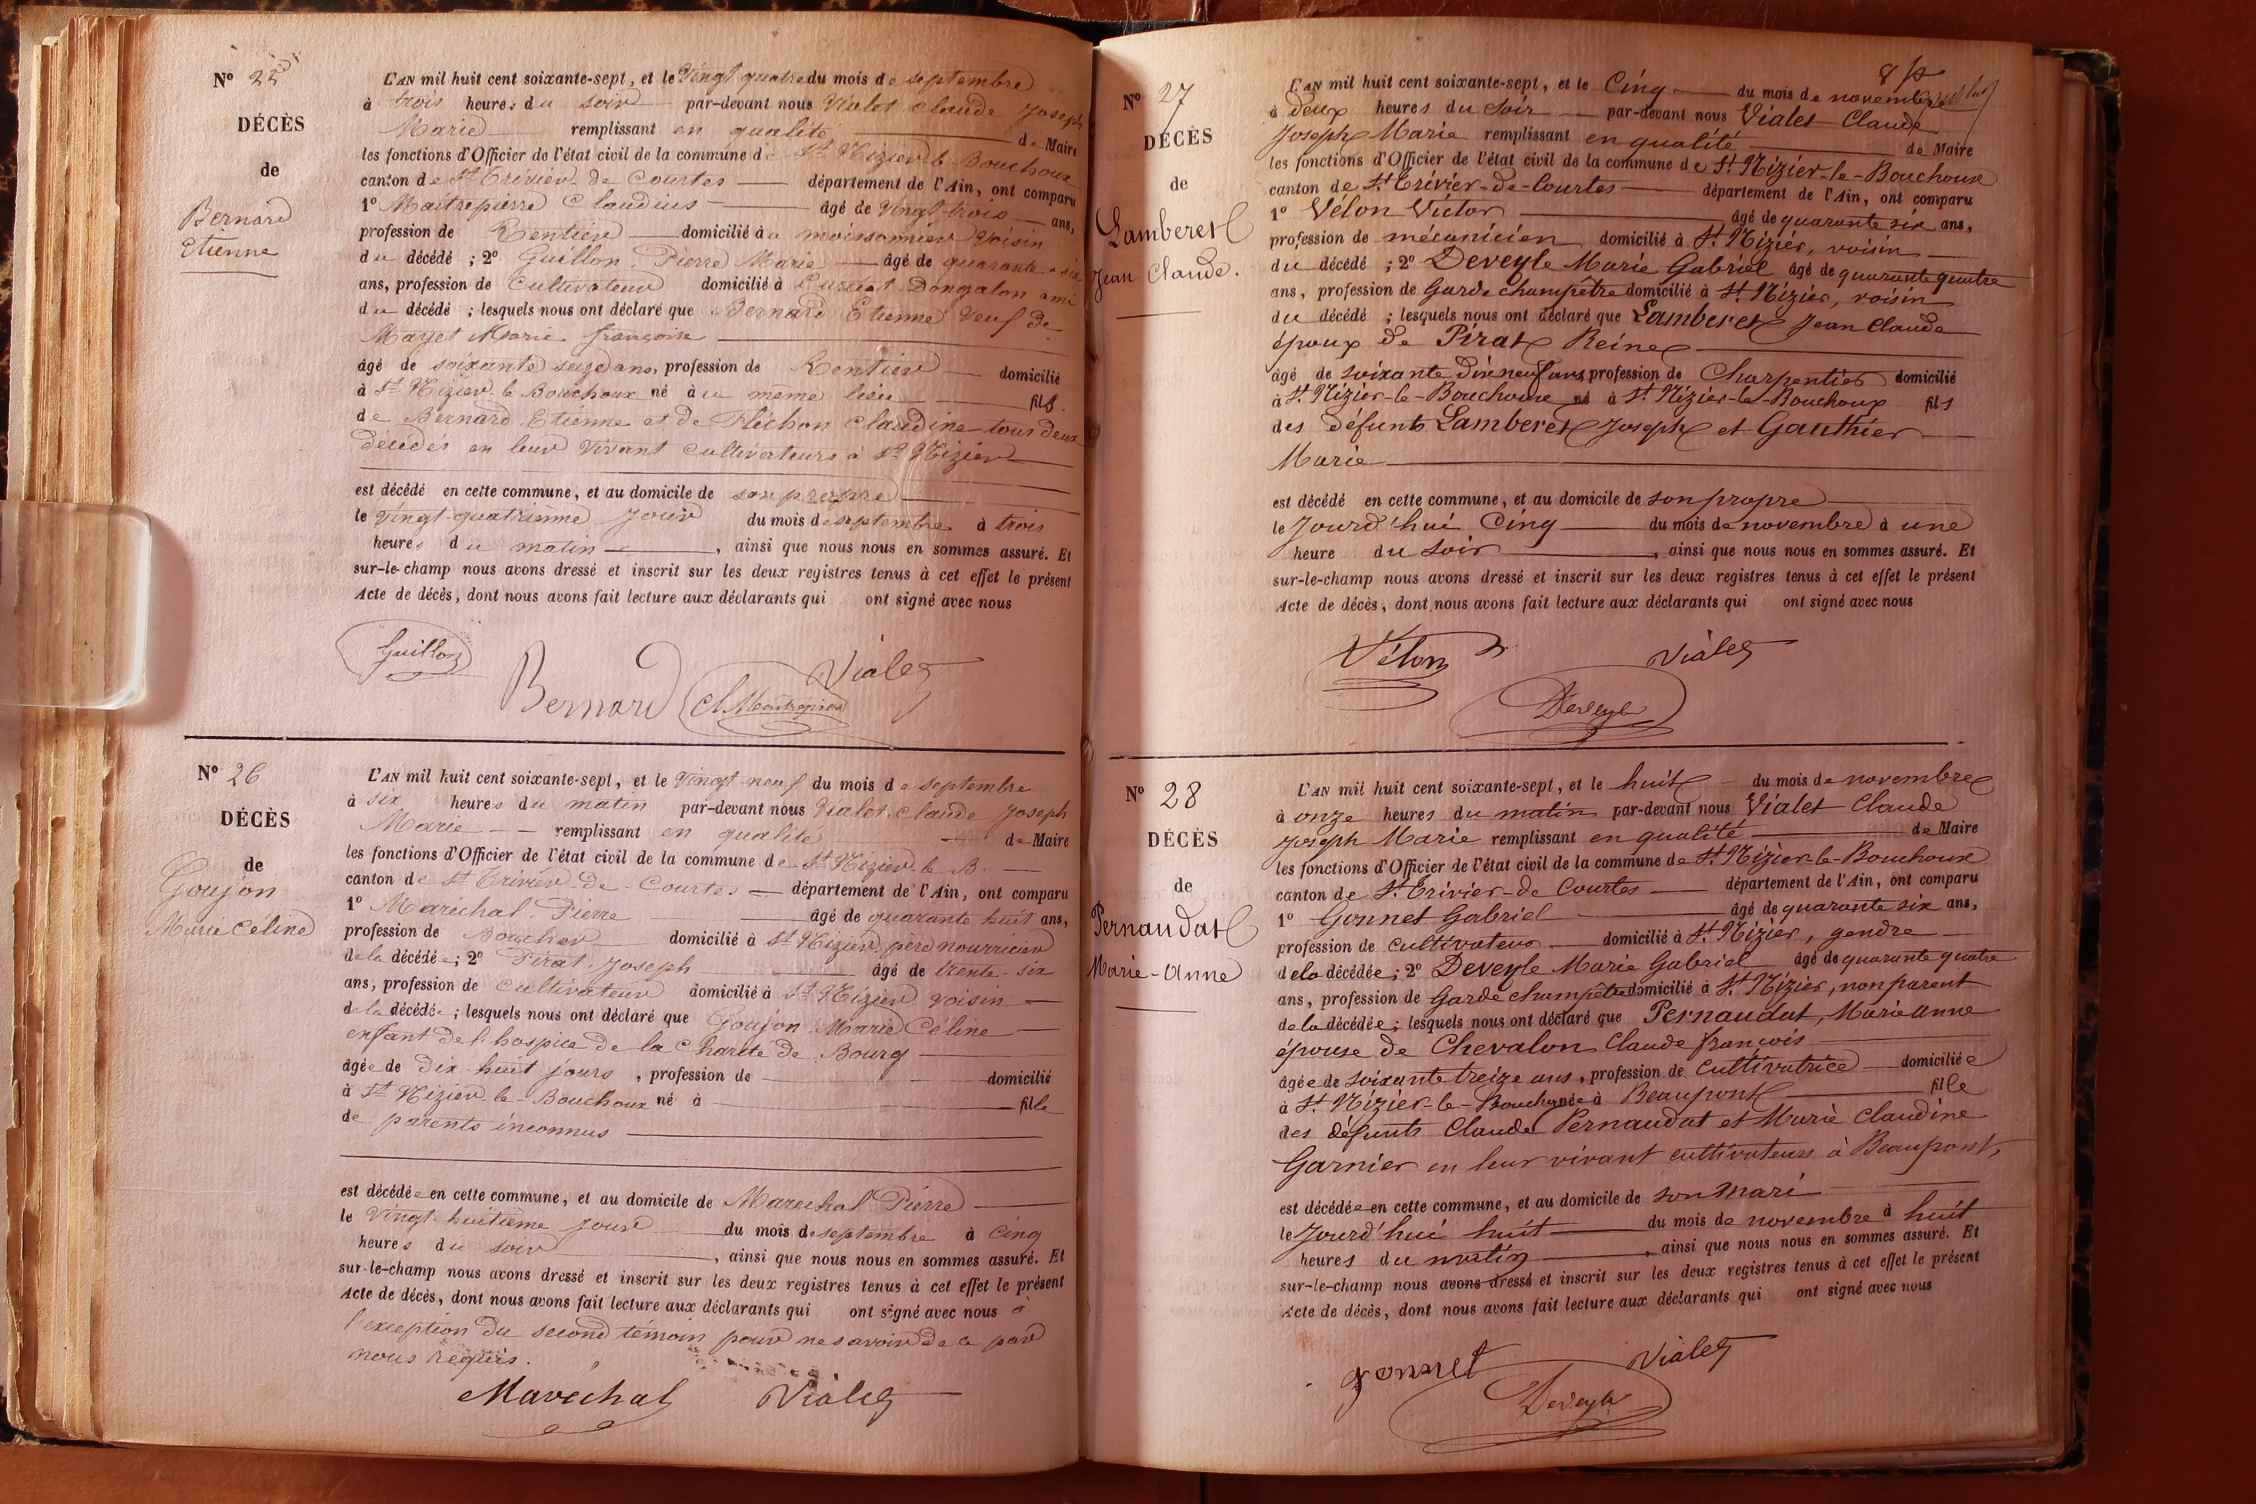 N° 25
DÉCÈS
de
Bernard
Etienne
L'AN mil huit cent soixante-sept, et le Vingt quatre du mois de septembre
à trois heures du soir par-devant nous Vialet Claude Joseph
Marie remplissant en qualité de Maire
les fonctions d'Officier de l'état civil de la commune de St Nizier-le-Bouchoux
canton de St Trivier-de-Courtes département de l'Ain, ont comparu
1° Maitrepierre Claudius âgé de vingt-trois ans,
profession de Rentier domicilié à moissonnier voisin
du décédé ; 2° Guillon Pierre Marie âgé de quarante-six
ans, profession de Cultivateur domicilié à Curciat Dongalon ami
du décédé ; lesquels nous ont déclaré que Bernard Etienne Veuf de
Mayet Marie françoise
âgé de soixante seize ans, profession de Rentier domicilié
à St Nizier-le-Bouchoux né à u même lieu fils
de Bernard Etienne et de Fléchon Claudine tous deux
décédés en leur vivant cultivateurs à St Nizier
est décédé en cette commune, et au domicile de son propre
le Vingt-quatrième jour du mois de septembre à trois
heures du matin, ainsi que nous nous en sommes assuré. Et
sur-le-champ nous avons dressé et inscrit sur les deux registres tenus à cet effet le présent
Acte de décès, dont nous avons fait lecture aux déclarants qui ont signé avec nous
Guillon
Vialet
Bernard Cl Maitrepierre
N° 26
DÉCÈS
de
Goujon
Marie Céline
L'AN mil huit cent soixante-sept, et le Vingt-neuf du mois de septembre
à six heures du matin par-devant nous Vialet Claude Joseph
Marie remplissant en qualité de Maire
les fonctions d'Officier de l'état civil de la commune de St Nizier-le-B.
canton de St Trivier-de-Courtes département de l'Ain, ont comparu
1° Maréchal Pierre âgé de quarante huit ans,
profession de Boucher domicilié à St Nizier, père nourricier
de la décédée ; 2° Pirat Joseph âgé de trente-six
ans, profession de Cultivateur domicilié à St Nizier voisin
de la décédée ; lesquels nous ont déclaré que Goujon Marie Céline
enfant de l'hospice de la charité de Bourg
âgée de Dix-huit jours, profession de domicilié
à St Nizier-le-Bouchoux né à fille
de parents inconnus
est décédée en cette commune, et au domicile de Marechal Pierre
le Vingt-huitième jour du mois de septembre à cinq
heures du soir, ainsi que nous nous en sommes assuré. Et
sur-le-champ nous avons dressé et inscrit sur les deux registres tenus à cet effet le présent
Acte de décès, dont nous avons fait lecture aux déclarants qui ont signé avec nous à
l'exception du second témoin pour ne savoir de ce par
nous requis.
Maréchal Vialet
N° 27
DÉCÈS
de
Lamberet
Jean Claude.
L'AN mil huit cent soixante-sept, et le Cinq du mois de novembre
à deux heures du soir par-devant nous Vialet Claude
Joseph Marie remplissant en qualité de Maire
les fonctions d'Officier de l'état civil de la commune de St Nizier-le-Bouchoux
canton de St Trivier-de-Courtes département de l'Ain, ont comparu
1° Vélon Victor âgé de quarante six ans,
profession de mécanicien domicilié à St Nizier, voisin
du décédé ; 2° Deveyle Marie Gabriel âgé de quarante quatre
ans, profession de Garde champêtre domicilié à St Nizier, voisin
du décédé ; lesquels nous ont déclaré que Lamberet Jean Claude
époux de Pirat Reine
âgé de soixante dix neuf ans, profession de Charpentier domicilié
à St Nizier-le-Bouchoux né à St Nizier-le-Bouchoux fils
des défunts Lamberet Joseph et Gauthier
Marie
est décédé en cette commune, et au domicile de son propre
le Jourd'hui Cinq du mois de novembre à une
heure du soir, ainsi que nous nous en sommes assuré. Et
sur-le-champ nous avons dressé et inscrit sur les deux registres tenus à cet effet le présent
Acte de décès, dont nous avons fait lecture aux déclarants qui ont signé avec nous
Vélon Vialet
Deveyle
N° 28
DÉCÈS
de
Pernaudat
Marie-Anne
L'AN mil huit cent soixante-sept, et le huit du mois de novembre
à onze heures du matin par-devant nous Vialet Claude
Joseph Marie remplissant en qualité de Maire
les fonctions d'Officier de l'état civil de la commune de St Nizier-le-Bouchoux
canton de St Trivier-de Courtes département de l'Ain, ont comparu
1° Gonnet Gabriel âgé de quarante six ans,
profession de Cultivateur domicilié à St Nizier, gendre
de la décédée ; 2° Deveyle Marie Gabriel âgé de quarante quatre
ans, profession de Garde champêtre domicilié à St Nizier, non parent
de la décédée ; lesquels nous ont déclaré que Pernaudat, Marie anne
épouse de Chevalon Claude françois
âgée de soixante treize ans, profession de Cultivatrice domiciliée
à St Nizier-le-Bouchoux née à Beaupont fille
des défunts Claude Pernaudat et Marie Claudine
Garnier en leur vivant cultivateurs à Beaupont,
est décédée en cette commune, et au domicile de son mari
le Jourd'hui huit du mois de novembre à huit
heures du matin, ainsi que nous nous en sommes assuré. Et
sur-le-champ nous avons dressé et inscrit sur les deux registres tenus à cet effet le présent
Acte de décès, dont nous avons fait lecture aux déclarants qui ont signé avec nous
gonnet Vialet
Deveyle